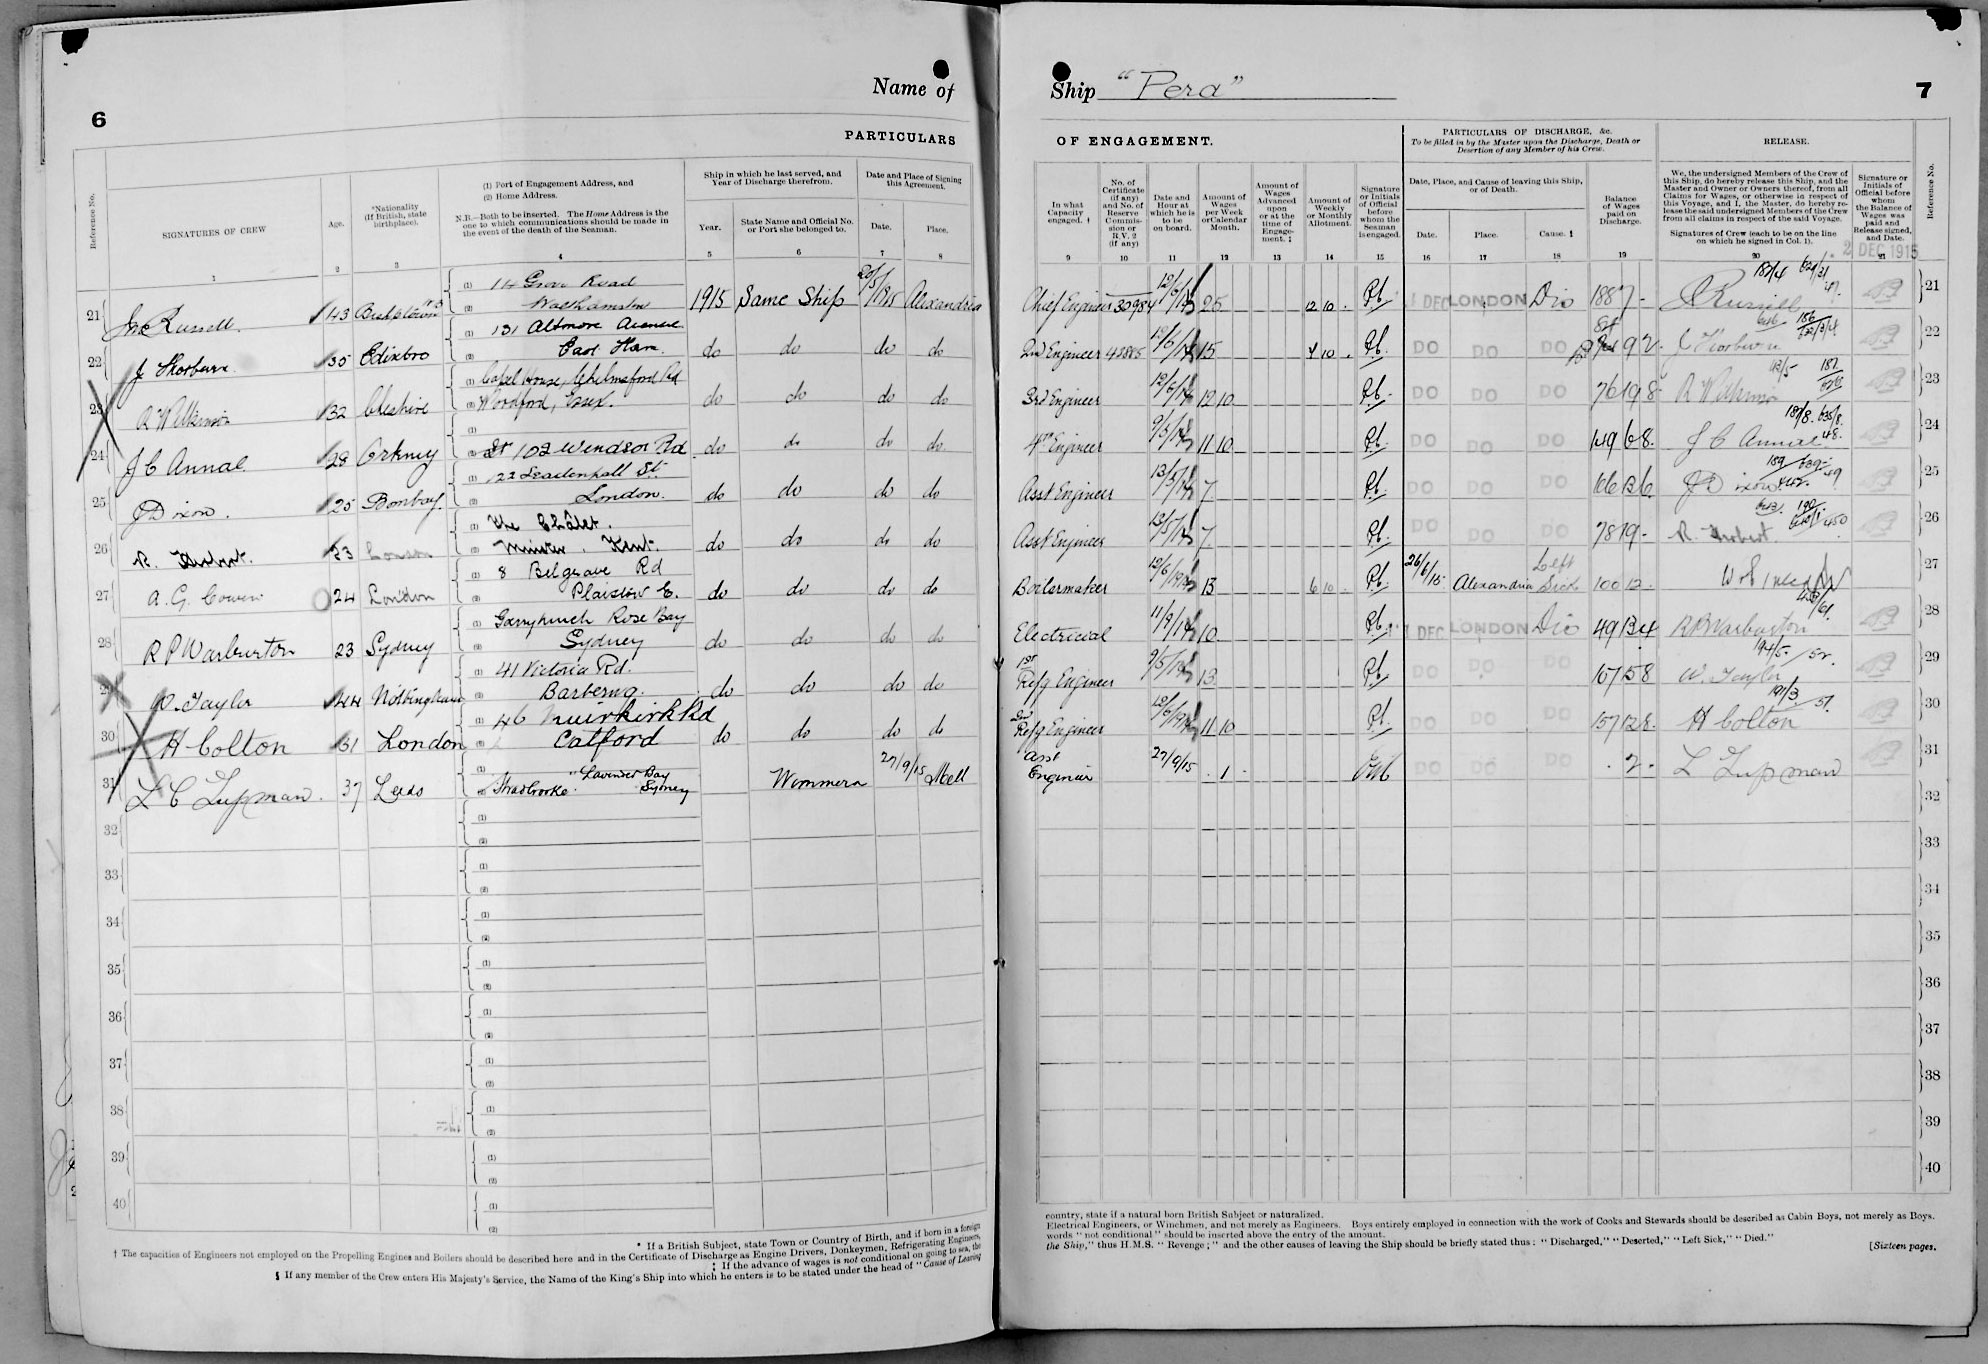 6
Name of
PARTICULARS
Reference No.
SIGNATURES OF CREW
Age.
*Nationality (If British, state birthplace).
(1) Port of Engagement Address, and
(2) Home Address.
N.B.—Both to be inserted. The Home Address is the one to which communications should be made in the event of the death of the Seaman.
Ship in which he last served, and Year of Discharge therefrom.
Year.
State Name and Official No. or Port she belonged to.
Date and Place of Signing this Agreement.
Date.
Place.
1 2 3 4 5 6 7 8
21 Jno Russell. 43 (1) 114 Grove Road
(2) Walthamstow 1915 Same Ship 20/5/1915 Alexandria
22 J Thorburn. 35 Edinbro (1) 131 Altmore Avenue
(2) East Ham. do do do do
23 R Wilkinson 32 Cheshire (1) Capel House, Chelmsford Rd
(2) Woodford, Essex. do do do do
24 J C Annal 28 Orkney (1)
(2) 102 Windsor Rd. do do do do
25 J Dixon. 25 Bombay. (1) 122 Leadenhall St.
(2) London. do do do do
26 R. Herbert. 23 London (1) The Châlet.
(2) Minster. Kent. do do do do
27 A. G. Cowen 24 London (1) 8 Belgrave Rd
(2) Plaistow E. do do do do
28 R P Warburton 23 Sydney (1) Garryhinch Rose Bay
(2) Sydney do do do do
29 W. Taylor 44 Nottingham (1) 41 Victoria Rd.
(2) Barking. do do do do
30 H Colton 31 London (1) 46 Muirkirk Rd
(2) Catford do do do do
31 L C Lupman. 37 Leeds (1) Lavender Bay
(2) Stradbroke. Sydney Wimmera 27/9/15 Melb
32 (1)
(2)
33 (1)
(2)
34 (1)
(2)
35 (1)
(2)
36 (1)
(2)
37 (1)
(2)
38 (1)
(2)
39 (1)
(2)
40 (1)
(2)
* If a British Subject, state Town or Country of Birth, and if born in a foreign
† The capacities of Engineers not employed on the Propelling Engines and Boilers should be described here and in the Certificate of Discharge as Engine Drivers, Donkeymen, Refrigerating Engineers,
‡ If the advance of wages is not conditional on going to sea, the
§ If any member of the Crew enters His Majesty's Service, the Name of the King's Ship into which he enters is to be stated under the head of "Cause of Leaving
Ship "Pera"
7
OF ENGAGEMENT.
PARTICULARS OF DISCHARGE, &c.
To be filled in by the Master upon the Discharge, Death or Desertion of any Member of his Crew.
RELEASE.
In what Capacity engaged. †
No. of Certificate (if any) and No. of Reserve Commission or R.V. 2 (if any)
Date and Hour at which he is to be on board.
Amount of Wages per Week or Calendar Month.
Amount of Wages Advanced upon or at the time of Engagement. ‡
Amount of Weekly or Monthly Allotment.
Signature or Initials of Official before whom the Seaman is engaged.
Date, Place, and Cause of leaving this Ship, or of Death.
Date.
Place.
Cause. §
Balance of Wages paid on Discharge.
We, the undersigned Members of the Crew of this Ship, do hereby release this Ship, and the Master and Owner or Owners thereof, from all Claims for Wages, or otherwise in respect of this Voyage, and I, the Master, do hereby release the said undersigned Members of the Crew from all claims in respect of the said Voyage.
Signatures of Crew (each to be on the line on which he signed in Col. 1).
Signature or Initials of Official before whom the Balance of Wages was paid and Release signed, and Date.
Reference No.
9 10 11 12 13 14 15 16 17 18 19 20 21
2 DEC 1915
Chief Engineer 30984 25 12 10 1 DEC LONDON Dis 188 7 - J Russell 21
2nd Engineer 15 DO DO DO 9 2 J Thorburn 22
3rd Engineer 12 10 DO DO DO 76 19 8 R Wilkinson 23
4th Engineer 11 10 DO DO DO 149 6 8 J C Annal 24
Asst Engineer 7 DO DO DO J Dixon 25
Asst Engineer 7 DO DO DO 78 19 - R. Herbert 26
Boilermaker 13 6 10 26/6/15 Alexandria Left Sick 100 12 - 27
Electrician 10 1 DEC LONDON Dis 49 13 4 R P Warburton 28
1st Refg Engineer 13 DO DO DO 167 5 8 W. Taylor 29
2nd Refg Engineer 11 10 DO DO DO 157 12 8 H Colton 30
Asst Engineer 27/9/15 1 DO DO DO 2 - L Lupman 31
32
33
34
35
36
37
38
39
40
country, state if a natural born British Subject or naturalized.
Electrical Engineers, or Winchmen, and not merely as Engineers. Boys entirely employed in connection with the work of Cooks and Stewards should be described as Cabin Boys, not merely as Boys.
words "not conditional" should be inserted above the entry of the amount.
the Ship," thus H.M.S. "Revenge;" and the other causes of leaving the Ship should be briefly stated thus: "Discharged," "Deserted," "Left Sick," "Died."
[Sixteen pages.